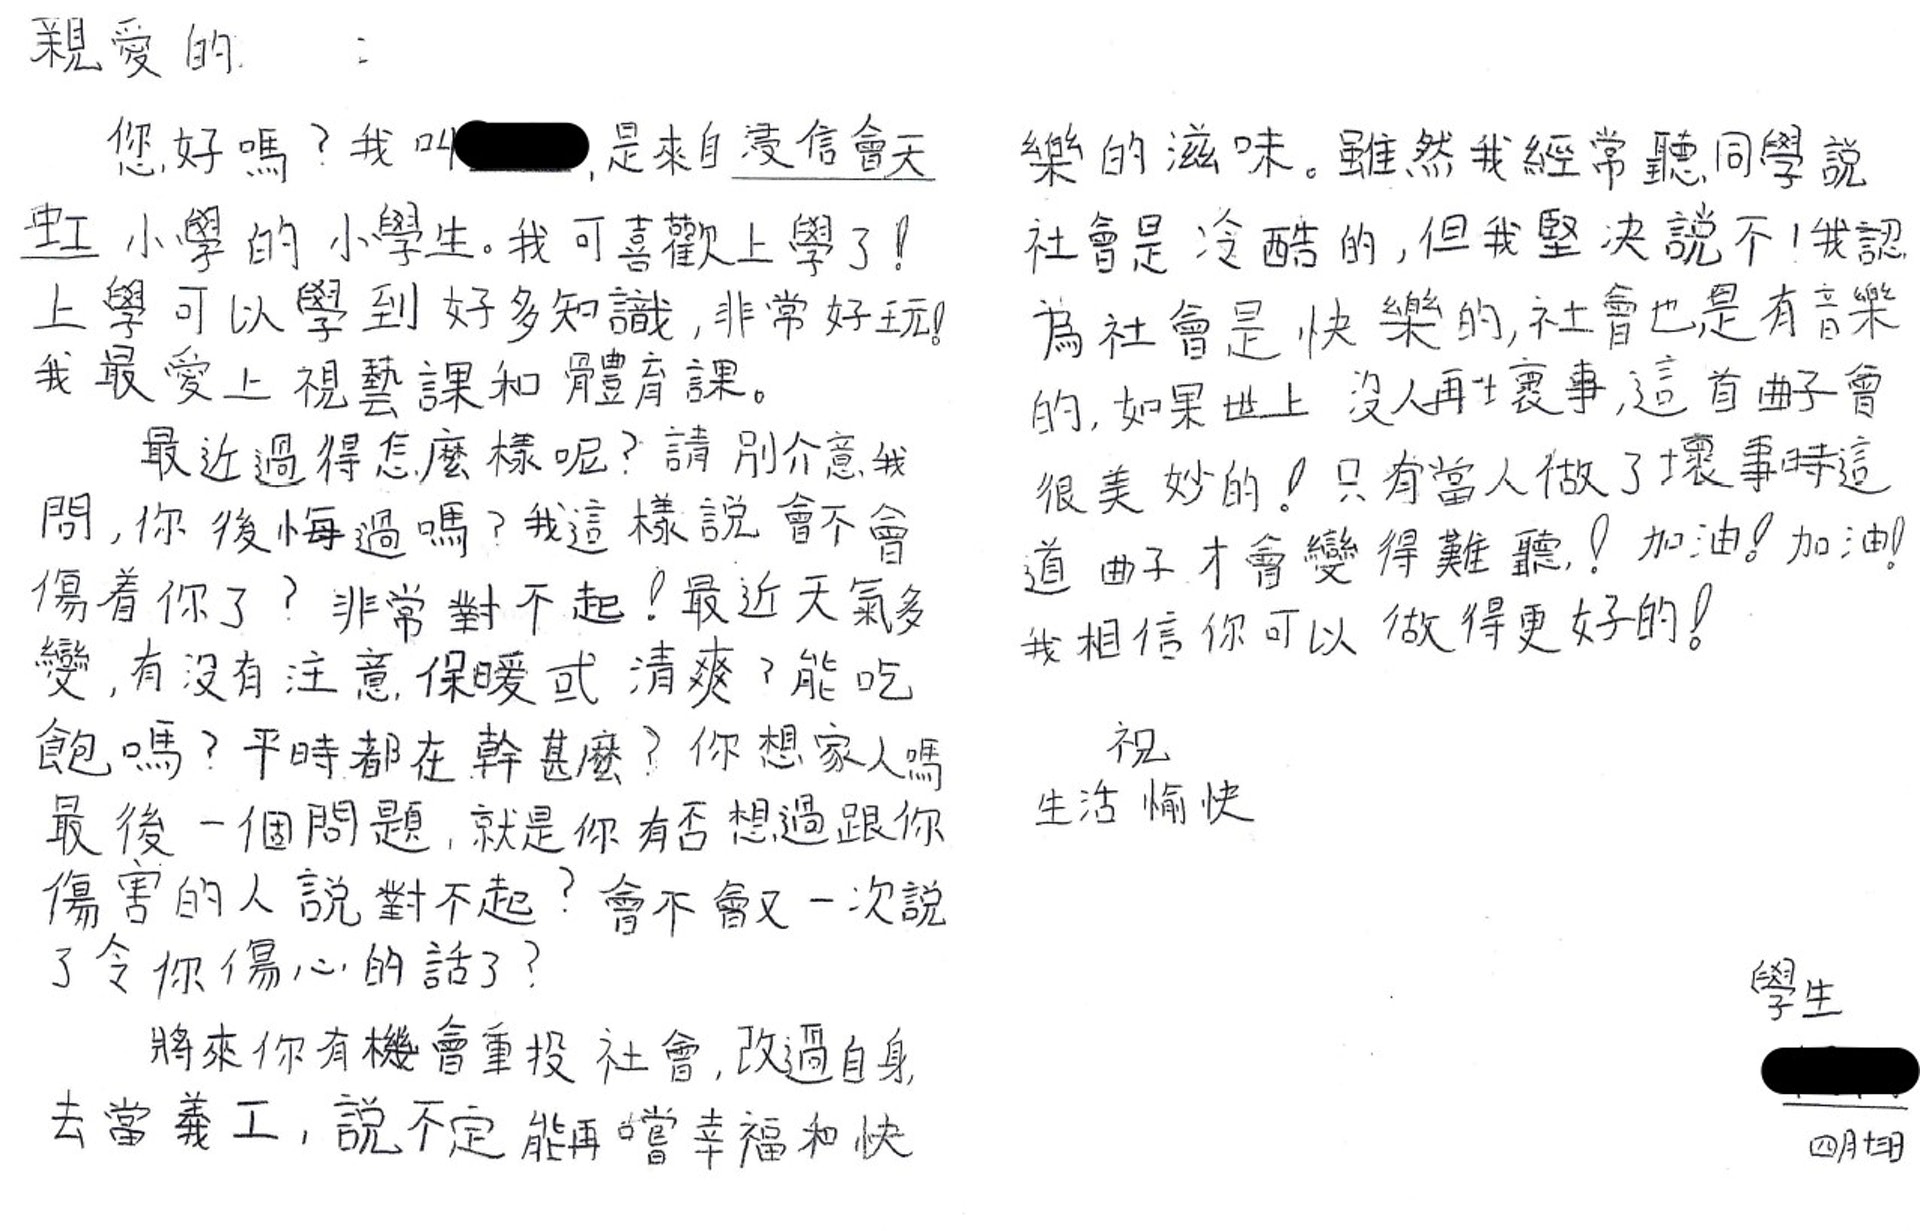 親愛的　　：
您好嗎？我叫　　，是來自浸信會天
虹小學的小學生。我可喜歡上學了！
上學可以學到好多知識，非常好玩！
我最愛上視藝課和體育課。
最近過得怎麼樣呢？請別介意我
問，你後悔過嗎？我這樣說會不會
傷着你了？非常對不起！最近天氣多
變，有沒有注意保暖或清爽？能吃
飽嗎？平時都在幹甚麼？你想家人嗎
最後一個問題，就是你有否想過跟你
傷害的人說對不起？會不會又一次說
了令你傷心的話了？
將來你有機會重投社會，改過自身，
去當義工，說不定能再嚐幸福和快
樂的滋味。雖然我經常聽同學說
社會是冷酷的，但我堅決說不！我認
為社會是快樂的，社會也是有音樂
的，如果世上沒人再壞事，這首曲子會
很美妙的！只有當人做了壞事時這
道曲子才會變得難聽！加油！加油！
我相信你可以做得更好的！
祝
生活愉快
學生
四月